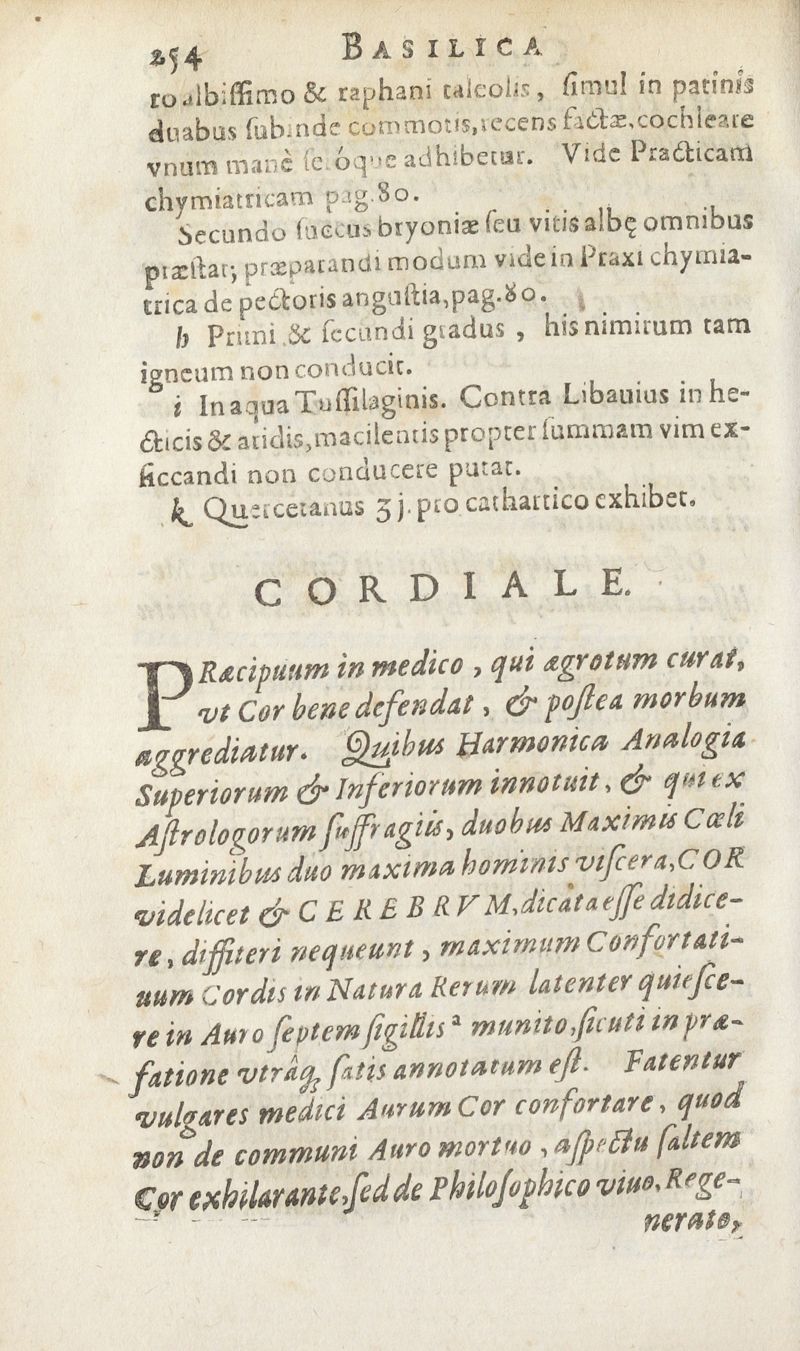 254 BASILICA
ro albiſſimo & raphani taleolis, ſimul in patinis
duabus ſubinde commotis, recens factæ, cochleare
vnum manè ſeróque adhibetur. Vide Practicam
chymiatricam pag. 80.
Secundo ſuccus bryoniæ ſeu vitis albę omnibus
præſtat; præparandi modum vide in Praxi chymia-
trica de pectoris anguſtia, pag. 80.
h Primi & ſecundi gradus, his nimirum tam
igneum non conducit.
i In aqua Tuſſilaginis. Contra Libauius in he-
cticis & aridis, macilentis propter ſummam vim ex-
ſiccandi non conducere putat.
k Quercetanus ʒ j. pro cathartico exhibet.
CORDIALE.
PRæcipuum in medico, qui ægrotum curat,
vt Cor bene defendat, & poſtea morbum
aggrediatur. Quibus Harmonica Analogia
Superiorum & Inferiorum innotuit, & qui ex
Aſtrologorum ſuffragiis, duobus Maximis Cœli
Luminibus duo maxima hominis viſcera, COR
videlicet & CEREBRVM, dicata eſſe didice-
re, diffiteri nequeunt, maximum Confortati-
uum Cordis in Natura Rerum latenter quieſce-
re in Auro ſeptem ſigillis a munito, ſicuti in præ-
fatione vtrâq; ſatis annotatum eſt. Fatentur
vulgares medici Aurum Cor confortare, quod
non de communi Auro mortuo, aſpectu ſaltem
Cor exhilarante, ſed de Philoſophico viuo, Rege-
nerato,